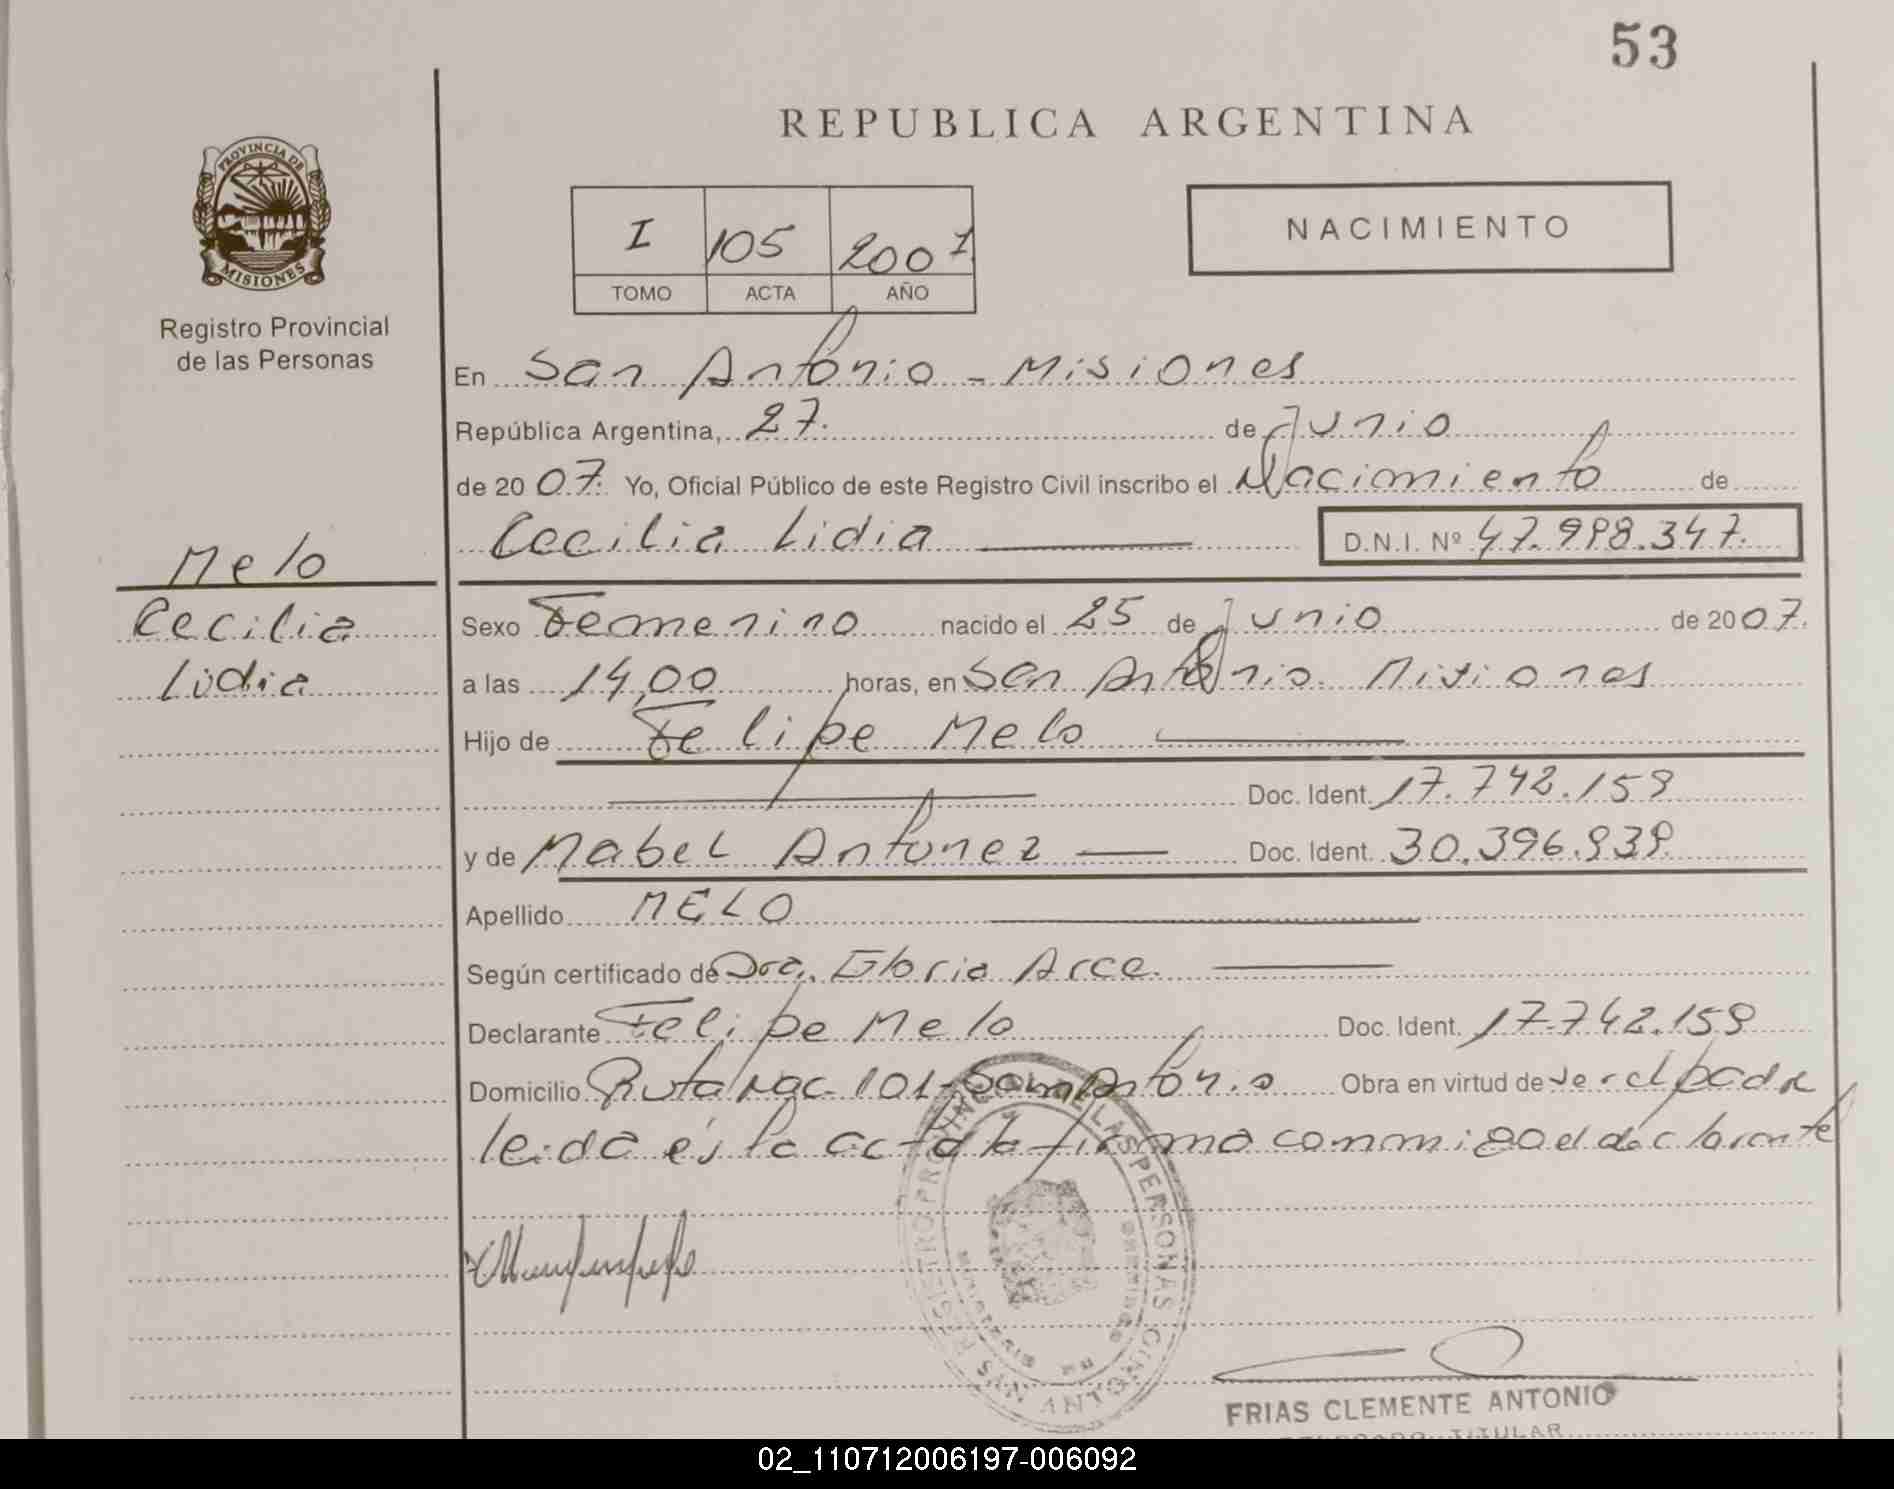 53
REPUBLICA ARGENTINA
PROVINCIA DE MISIONES
Registro Provincial
de las Personas
I 105 2007
TOMO ACTA AÑO
NACIMIENTO
En San Antonio - Misiones
República Argentina, 27. de Junio
de 2007. Yo, Oficial Público de este Registro Civil inscribo el Nacimiento de
Cecilia Lidia D.N.I. Nº 47.998.347.
Melo
Cecilia
Lidia
Sexo Femenino nacido el 25 de Junio de 2007.
a las 14,00 horas, en San Antonio Misiones
Hijo de Felipe Melo
Doc. Ident. 17.742.159
y de Mabel Antunez Doc. Ident. 30.396.939.
Apellido MELO
Según certificado de Dra. Gloria Arce.
Declarante Felipe Melo Doc. Ident. 17.742.159
Domicilio Ruta Nac. 101 - San Antonio Obra en virtud de ser el padre
leida és la acta la firma conmigo el declarante
REGISTRO PROVINCIAL DE LAS PERSONAS
SAN ANTONIO
FRIAS CLEMENTE ANTONIO
TITULAR
02_110712006197-006092